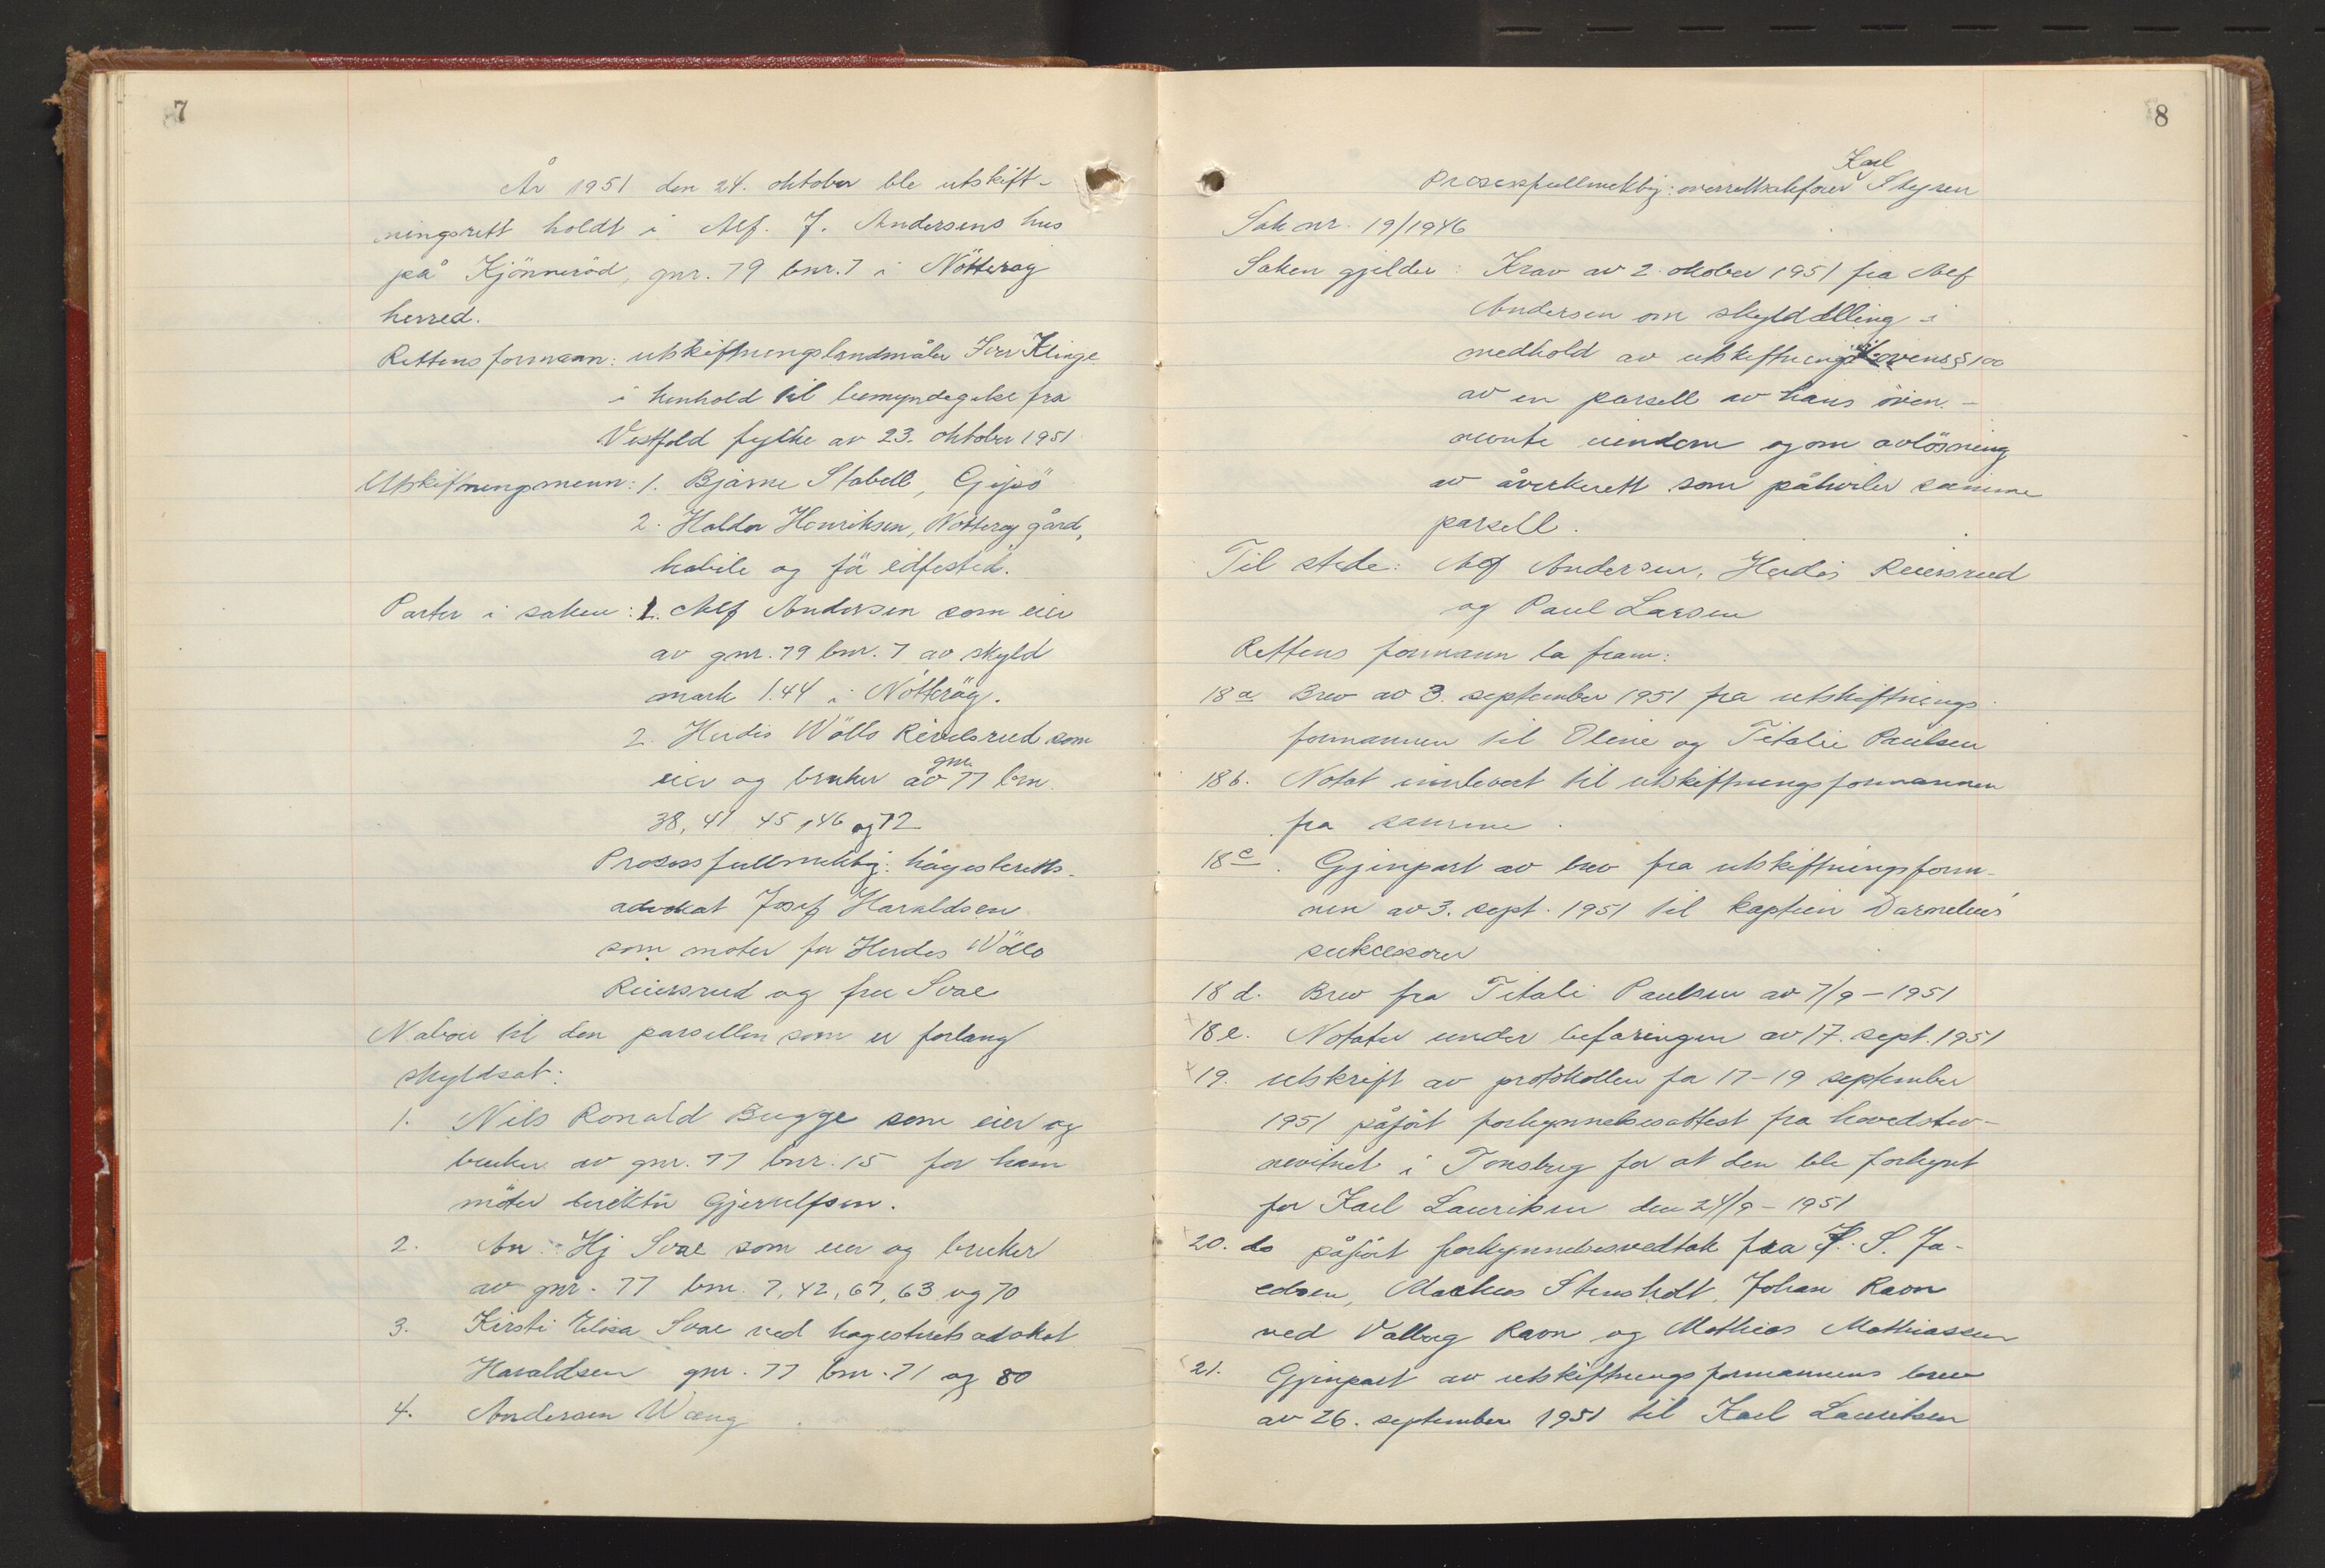 7
År 1951 den 24. oktober ble utskift-
ningsrett holdt i Alf. J. Andersens hus
på Kjönneröd, gnr. 79 bnr. 7 i Nötteröy
herred.
Rettens formann: utskiftningslandmåler Iver Klinge
i henhold til bemyndigelse fra
Vestfold fylke av 23. oktober 1951
Utskiftningsmenn: 1. Bjarne Stabell, Gipö
2. Haldor Henriksen, Nötteröy gård,
habile og för eidfestet.
Parter i saken: 1. Alf Andersen som eier
av gnr. 79 bnr. 7 av skyld
mark 1.44 i Nötteröy.
2. Herdis Wöllo Reiersrud som
eier og bruker av gnr 77 bnr.
38, 41 45, 46 og 72
Prosessfullmektig: høyesteretts-
advokat Josef Haraldsen
som møter for Herdis Wöllo
Reiersrud og fru Svae
Naboer til den parsellen som er forlang
skyldsat:
1. Nils Ronald Bugge som eier og
bruker av gnr. 77 bnr. 15 for ham
möter direktör Gjerulfsen.
2. An Hj Svae som eier og bruker
av gnr. 77 bnr. 7, 42, 67, 63 og 70
3. Kirsti Elisa Svae ved høgesteretsadokat
Haraldsen gnr. 77 bnr. 71 og 80
4. Andersen Wang
8
Prosessfullmektig: overrettsakfører Karl Steysen
Sak nr. 19/1946
Saken gjelder: Krav av 2. okober 1951 fra Alf
Andersen om skylddelling i
medhold av utskiftningslovens § 100
av en parsell av hans öven-
nevnte eiendom og om avlösning
av åverkrett som påhviler samme
parsell.
Til stede: Alf Andersen, Herdis Reiersrud
og Paul Larsen
Rettens formann la fram:
18 a Brev av 3. september 1951 fra utskiftnings-
formannen til Oline og Titalie Paulsen
18 b. Notat innlevert til utskiftningsformannen
fra samme.
18 c. Gjenpart av brev fra utskiftningsform-
nen av 3. sept. 1951 til kaptein Darnelius'
suksessorer
18 d. Brev fra Titali Paulsen av 7/9 – 1951
18 e. Notater under befaringen av 17. sept. 1951
19. utskrift av protokollen fa 17-19 september
1951 påfört forkynnelsesattest fra hovedstev-
nevitnet i Tonsberg for at den ble forkynt
for Karl Lauritsen den 24/9 – 1951
20. do påfört forkynnelsesvedtak fra S. Ja-
cobsen, Markus Stensholt, Johan Ravn
ved Valborg Ravn og Mathias Mathiassen
21. Gjenpart av utskiftningsformannens brev
av 26. september 1951 til Karl Lauritsen